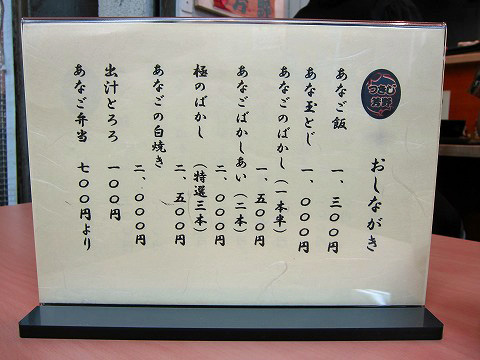 おしながき
あなご飯 一、三〇〇円
あな玉とじ 一、〇〇〇円
あなごのばかし（一本半）
一、五〇〇円
あなごばかしあい（二本）
二、〇〇〇円
極のばかし（特選三本）
二、五〇〇円
あなごの白焼き
二、〇〇〇円
出汁とろろ 一〇〇円
あなご弁当 七〇〇円より